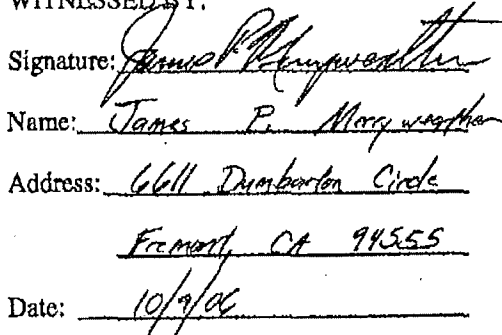 WITNESSED BY:
Signature: James P. Merryweather
Name: James P. Merryweather
Address: 6611 Dumbarton Circle
Fremont, CA 94555
Date: 10/9/06